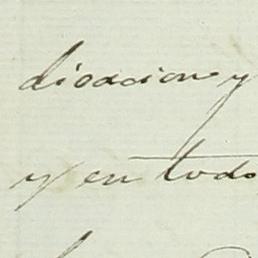 dicacion y
y en todo